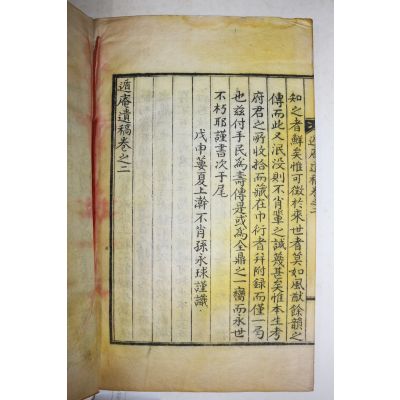 遁庵遺稿卷之二
知之者鮮矣惟可徵於來世者莫如風猷餘韻之
傳而此又泯没則不肖輩之誠蔑甚矣惟本生考
府君之所收拾而藏在巾衍者幷附錄而僅一局
也玆付手民爲壽傳是或爲全鼎之一臠而永世
不朽耶謹書次于尾
戊申蓂夏上澣不肖孫永球謹識
遁庵遺稿卷之二